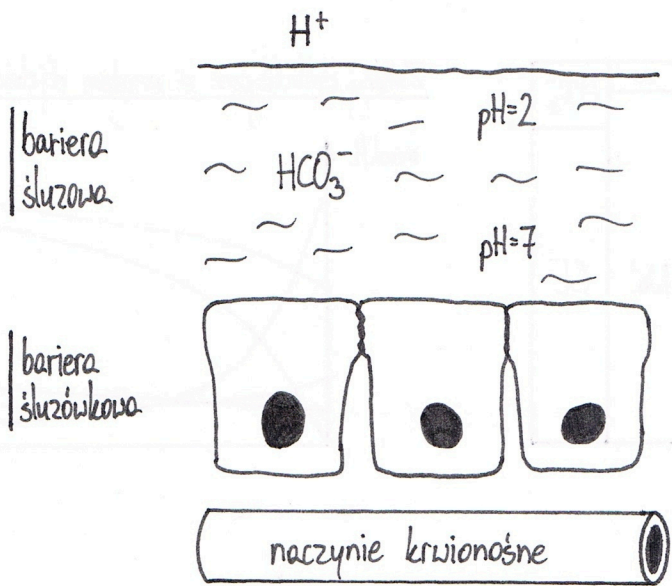 H⁺
pH=2
bariera
śluzowa
HCO₃⁻
pH=7
bariera
śluzówkowa
naczynie krwionośne